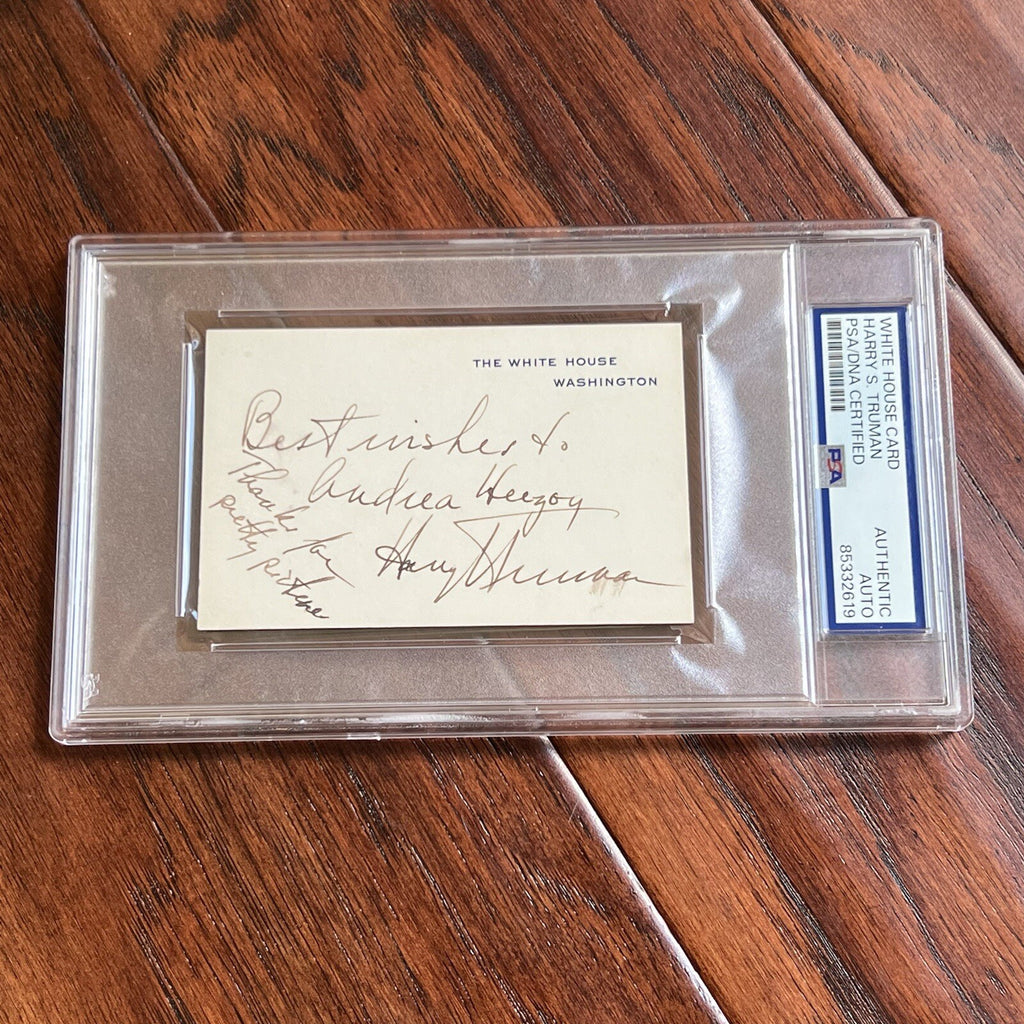 THE WHITE HOUSE
WASHINGTON
Best wishes to
Andrea Herzog
Harry Truman
Thanks for
pretty picture
WHITE HOUSE CARD
HARRY S. TRUMAN
PSA/DNA CERTIFIED
PSA
AUTHENTIC
AUTO
85332619